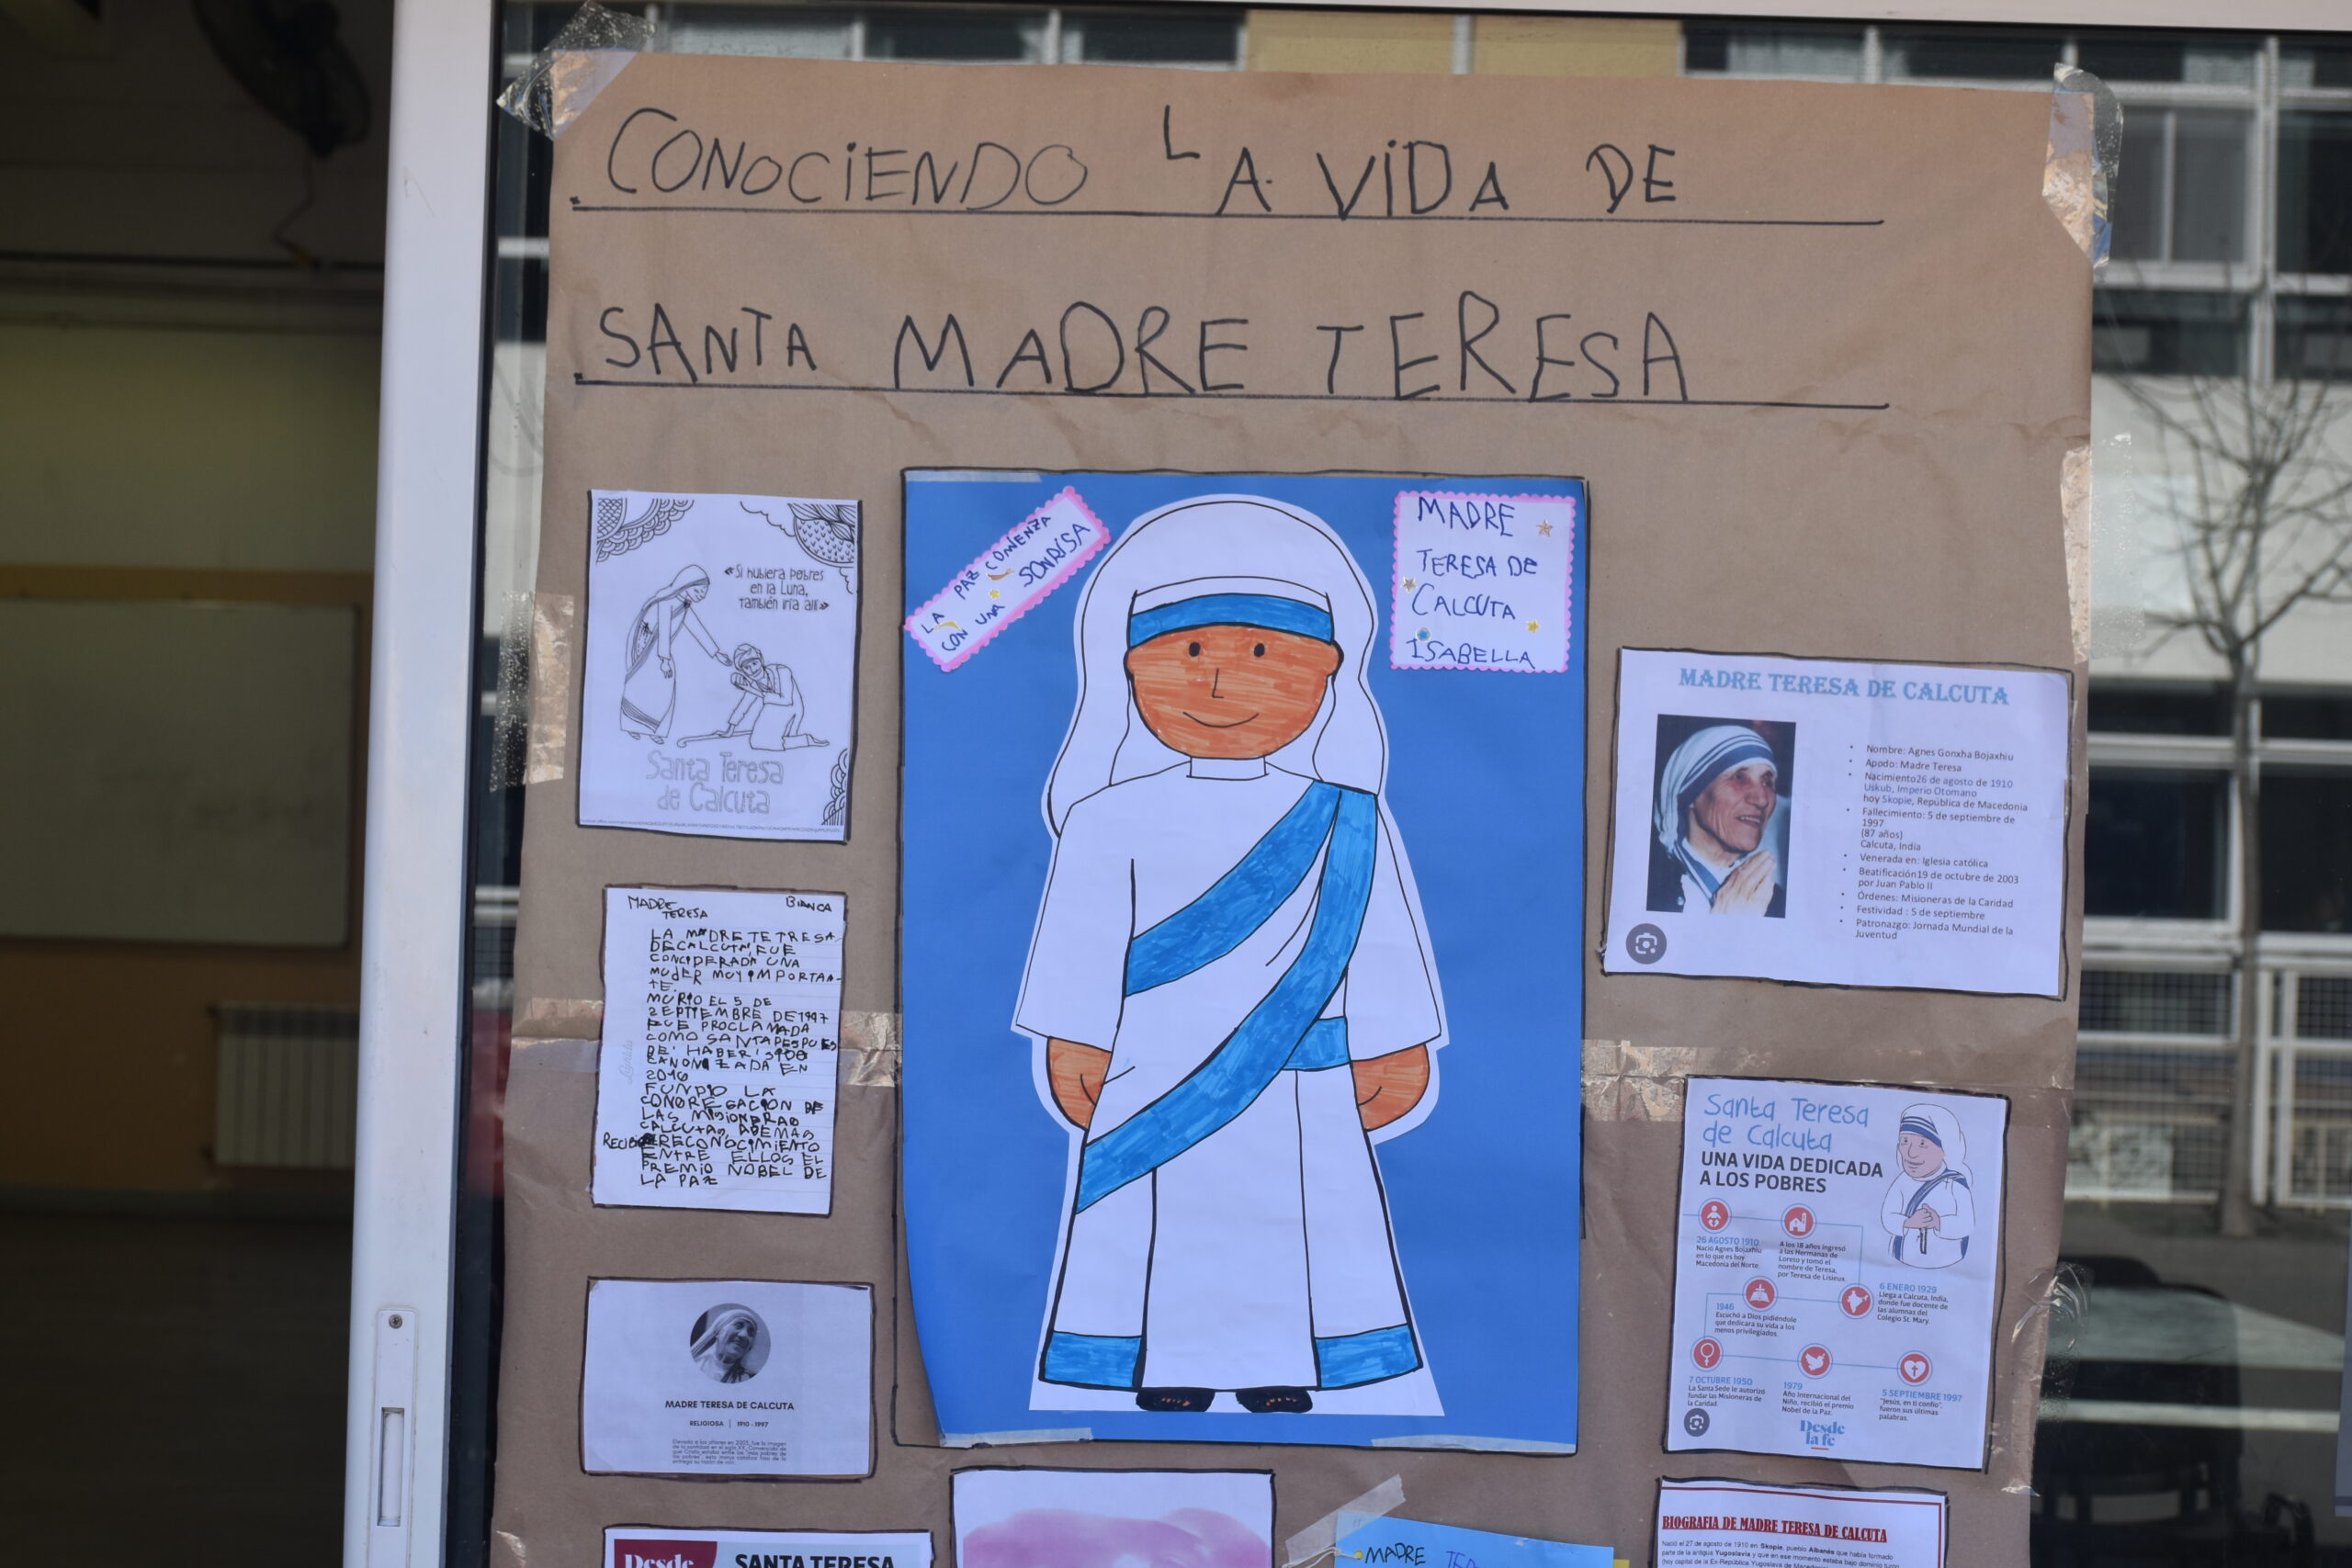 CONOCIENDO LA VIDA DE
SANTA MADRE TERESA
«Si hubiera pobres
en la Luna,
también iría allí»
Santa Teresa
de Calcuta
LA PAZ COMIENZA
CON UNA SONRISA
MADRE
TERESA DE
CALCUTA
ISABELLA
MADRE TERESA DE CALCUTA
Nombre: Agnes Gonxha Bojaxhiu
Apodo: Madre Teresa
Nacimiento26 de agosto de 1910
Uskub, Imperio Otomano
hoy Skopie, República de Macedonia
Fallecimiento: 5 de septiembre de
1997
(87 años)
Calcuta, India
Venerada en: Iglesia católica
Beatificación19 de octubre de 2003
por Juan Pablo II
Órdenes: Misioneras de la Caridad
Festividad : 5 de septiembre
Patronazgo: Jornada Mundial de la
Juventud
MADRE
TERESA
BIANCA
LA MADRE TETRESA
DECALCUTA FUE
CONCIDERADA UNA
MUJER MUY IMPORTAN-
TE.
MURIO EL 5 DE
SEPTIEMBRE DE 1997
FUE PROCLAMADA
COMO SANTA DESPUES
DE HABER SIDO
CANONIZADA EN
2016
FUNDO LA
CONGREGACION DE
LAS
CALCUTAS, ADEMAS
RECIBE RECONOCIMIENTO
ENTRE ELLOS EL
PREMIO NOBEL DE
LA PAZ
Santa Teresa
de Calcuta
UNA VIDA DEDICADA
A LOS POBRES
26 AGOSTO 1910
Nació Agnes Bojaxhiu
en lo que es hoy
Macedonia del Norte.
A los 18 años ingresó
a las Hermanas de
Loreto y tomó el
nombre de Teresa,
por Teresa de Lisieux.
6 ENERO 1929
Llega a Calcuta, India,
donde fue docente de
las alumnas del
Colegio St. Mary
1946
Escuchó a Dios pidiéndole
que dedicara su vida a los
menos privilegiados.
7 OCTUBRE 1950
La Santa Sede le autorizó
fundar las Misioneras de
la Caridad.
1979
Año Internacional del
Niño, recibió el premio
Nobel de la Paz.
5 SEPTIEMBRE 1997
"Jesús, en ti confío",
fueron sus últimas
palabras.
Desde
la fe
MADRE TERESA DE CALCUTA
RELIGIOSA | 1910 - 1997
Desde
SANTA TERESA
MADRE
BIOGRAFIA DE MADRE TERESA DE CALCUTA
Nació el 27 de agosto de 1910 en Skopie, pueblo Albanés que había formado
parte de la antigua Yugoslavia y que en ese momento estaba bajo dominio turco